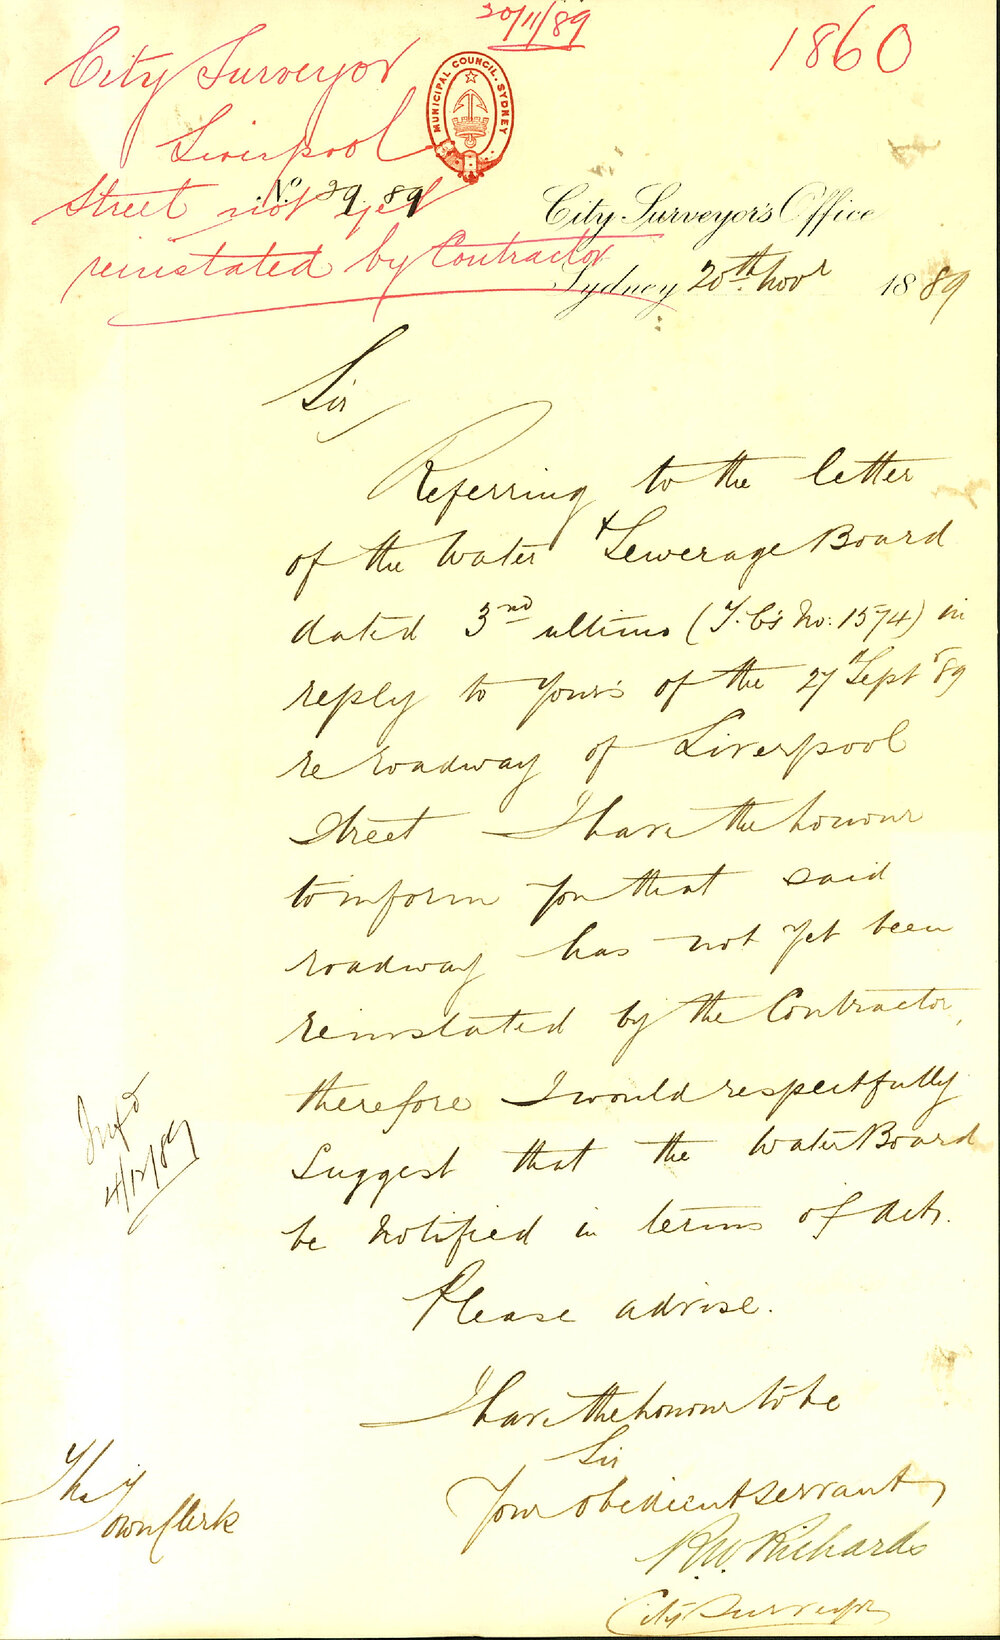 20/11/89
1860
City Surveyor
Liverpool
Street not yet
reinstated by Contractor
MUNICIPAL COUNCIL. SYDNEY
No. 29. 89
City Surveyor's Office
Sydney 20th Novr 1889
Sir
Referring to the letter
of the Water & Sewerage Board
dated 3rd ultimo (T.C's No: 1574) in
reply to yours of the 27 Septr 89
re roadway of Liverpool
Street I have the honour
to inform you that said
roadway has not yet been
reinstated by the Contractor,
therefore I would respectfully
suggest that the Water Board
be notified in terms of Act.
Please advise.
Infd
4/12/89
I have the honour to be
Sir
Your obedient servant,
R.W. Richards
City Surveyor
The Town Clerk